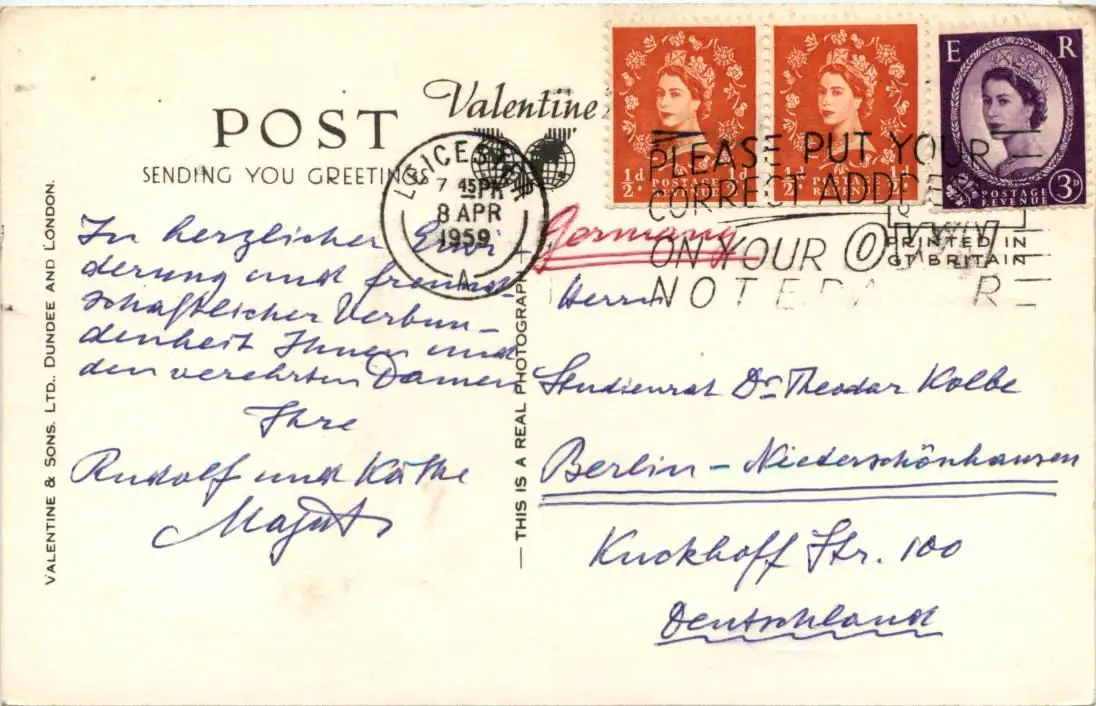 Valentine's
POST
SENDING YOU GREETINGS
LEICESTER
7 45 PM
8 APR
1959
A
½d POSTAGE REVENUE ½d
½d POSTAGE REVENUE ½d
E R
POSTAGE REVENUE 3D
PLEASE PUT YOUR
CORRECT ADDRESS
ON YOUR OWN
NOTEPAPER
PRINTED IN
GT BRITAIN
In herzlicher Erwi-
derung und freund-
schaftlicher Verbun-
denheit Ihnen und
den verehrten Damen
Ihre
Rudolf und Käthe
Majut
Germany
Herrn
Studienrat Dr Theodor Kolbe
Berlin - Niederschönhausen
Kuckhoff Str. 100
Deutschland
VALENTINE & SONS. LTD., DUNDEE AND LONDON.
— THIS IS A REAL PHOTOGRAPH